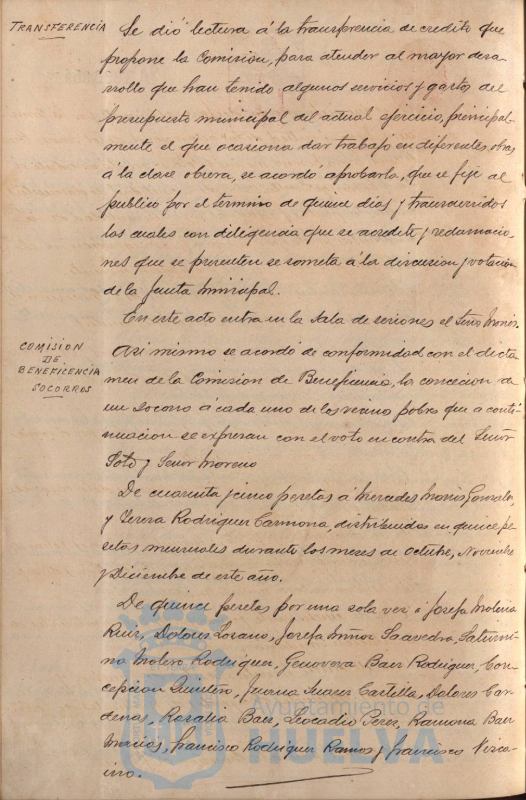 TRANSFERENCIA
Se dió lectura á la transferencia de credito que
propone la Comision, para atender al mayor desa-
rrollo que han tenido algunos servicios y gastos del
presupuesto municipal del actual ejercicio, principal-
mente el que ocasiona dar trabajo en diferentes obras
á la clase obrera, se acordó aprobarla, que se fije al
publico por el termino de quince dias y transcurridos
los cuales con diligencia que se acredite y reclamacio-
nes que se presenten se someta á la discusion y votacion
de la Junta Municipal.
En este acto entra en la Sala de sesiones el Señor
COMISION
DE
BENEFICENCIA
SOCORROS
Asi mismo se acordó de conformidad con el dicta
men de la Comision de Beneficencia, la concesion de
un socorro á cada uno de los vecinos pobres que a conti-
nuacion se expresan con el voto en contra del Señor
Soto y Señor Moreno
De cuarenta y cinco pesetas á Mercedes
y Teresa Rodriguez Carmona, distribuidas en quince pe
setas mensuales durante los meses de Octubre, Noviembre
y Diciembre de este año.
De quince pesetas por una sola vez á Josefa Molina
Ruiz, Dolores Lozano, Josefa Muñoz Saavedra, Saturni-
na Molero Rodriguez, Genoveva Baez Rodriguez, Con-
cepcion Juana Suarez Dolores Car-
denas, Rosalia Baez, Leocadio Perez, Ramona Baez
Macias, Francisco Rodriguez Ramos y Francisco Vizca-
ino.
Ayuntamiento de
HUELVA